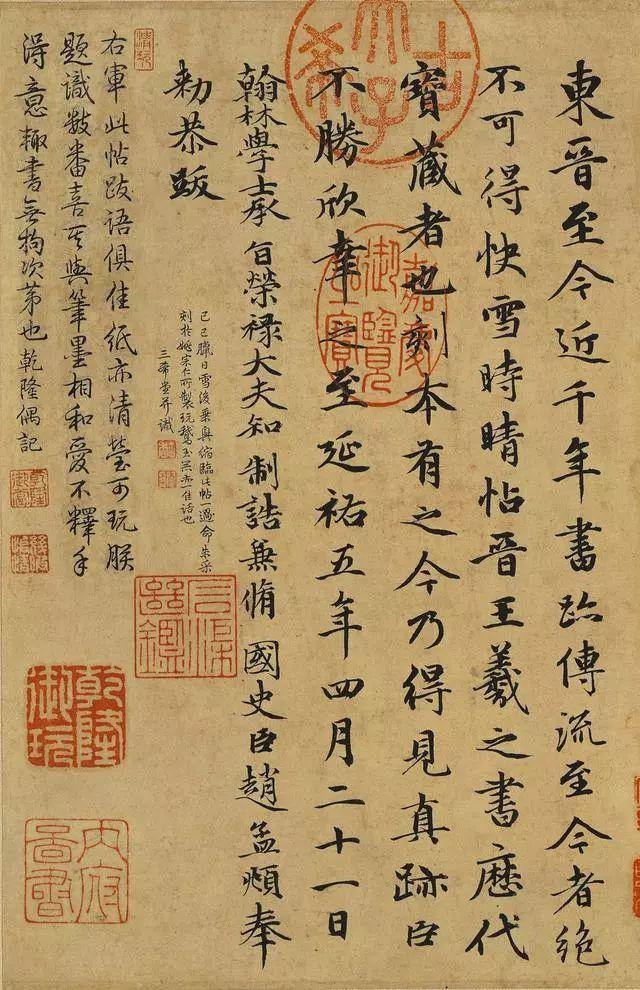 東晉至今近千年書跡傳流至今者絕
不可得快雪時晴帖晉王羲之書歷代
寶藏者也刻本有之今乃得見真跡臣
不勝欣幸之至延祐五年四月二十一日
翰林學士承旨榮祿大夫知制誥兼脩國史臣趙孟頫奉
勑恭跋
己巳臘日雪後乘興縮臨此帖適命朱采
刻於姚宗仁所製玩鵝玉器亦一佳話也
三希堂并識
右軍此帖跋語俱佳紙亦清瑩可玩朕
題識數番喜其與筆墨相和愛不釋手
得意輒書無拘次第也乾隆偶記
古希天子
嘉慶御覽之寶
乾隆御玩
內府圖書